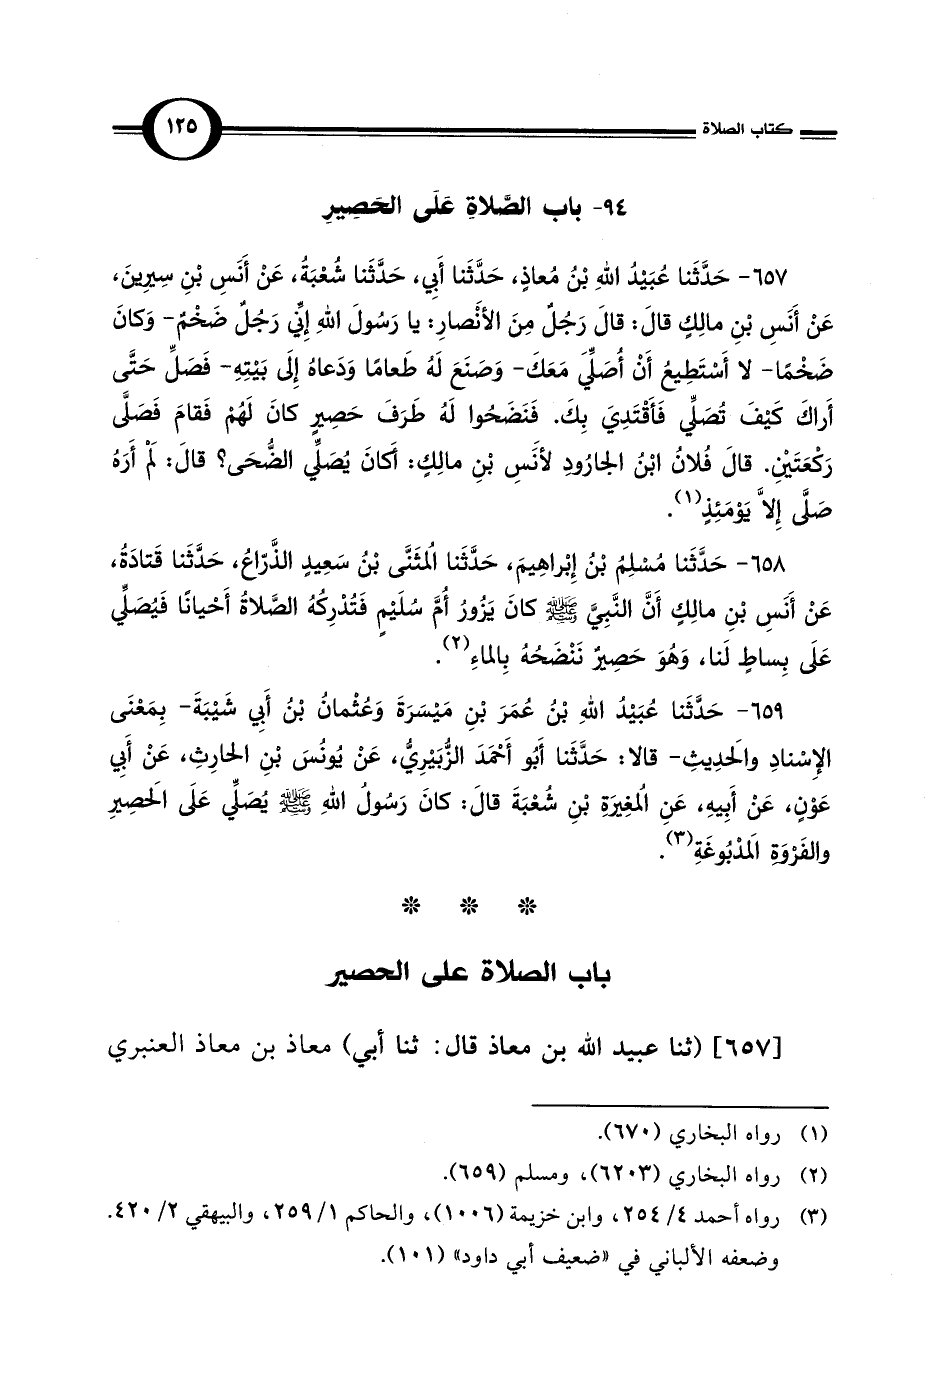 كتاب الصلاة ١٢٥
٩٤- باب الصَّلاةِ عَلَى الحَصِيرِ
٦٥٧- حَدَّثَنا عُبَيْدُ اللهِ بْنُ مُعاذٍ، حَدَّثَنا أَبِي، حَدَّثَنا شُعْبَةُ، عَنْ أَنَسِ بْنِ سِيرِينَ،
عَنْ أَنَسِ بْنِ مالِكٍ قالَ: قالَ رَجُلٌ مِنَ الأَنْصارِ: يا رَسُولَ اللهِ إِنِّي رَجُلٌ ضَخْمٌ- وَكانَ
ضَخْمًا- لا أَسْتَطِيعُ أَنْ أُصَلِّيَ مَعَكَ- وَصَنَعَ لَهُ طَعامًا وَدَعاهُ إِلَى بَيْتِهِ- فَصَلِّ حَتَّى
أَراكَ كَيْفَ تُصَلِّي فَأَقْتَدِيَ بِكَ. فَنَضَحُوا لَهُ طَرَفَ حَصِيرٍ كانَ لَهُمْ فَقامَ فَصَلَّى
رَكْعَتَيْنِ. قالَ فُلانُ ابْنُ الجارُودِ لأَنَسِ بْنِ مالِكٍ: أَكانَ يُصَلِّي الضُّحَى؟ قالَ: لَمْ أَرَهُ
صَلَّى إِلاَّ يَوْمَئِذٍ(١).
٦٥٨- حَدَّثَنا مُسْلِمُ بْنُ إِبْراهِيمَ، حَدَّثَنا المُثَنَّى بْنُ سَعِيدٍ الذَّرّاعُ، حَدَّثَنا قَتادَةُ،
عَنْ أَنَسِ بْنِ مالِكٍ أَنَّ النَّبِيَّ ﷺ كانَ يَزُورُ أُمَّ سُلَيْمٍ فَتُدْرِكُهُ الصَّلاةُ أَحْيانًا فَيُصَلِّي
عَلَى بِساطٍ لَنا، وَهُوَ حَصِيرٌ نَنْضَحُهُ بِالماءِ(٢).
٦٥٩- حَدَّثَنا عُبَيْدُ اللهِ بْنُ عُمَرَ بْنِ مَيْسَرَةَ وَعُثْمانُ بْنُ أَبِي شَيْبَةَ- بِمَعْنَى
الإِسْنادِ والَحدِيثِ- قالا: حَدَّثَنا أَبُو أَحْمَدَ الزُّبَيْرِيُّ، عَنْ يُونُسَ بْنِ الحارِثِ، عَنْ أَبِي
عَوْنٍ، عَنْ أَبِيهِ، عَنِ المُغِيرَةِ بْنِ شُعْبَةَ قالَ: كانَ رَسُولُ اللهِ ﷺ يُصَلِّي عَلَى الَحصِيرِ
والفَرْوَةِ المَدْبُوغَةِ(٣).
* * *
باب الصلاة على الحصير
[٦٥٧] (ثنا عبيد الله بن معاذ قال: ثنا أبي) معاذ بن معاذ العنبري
(١) رواه البخاري (٦٧٠).
(٢) رواه البخاري (٦٢٠٣)، ومسلم (٦٥٩).
(٣) رواه أحمد ٤/ ٢٥٤، وابن خزيمة (١٠٠٦)، والحاكم ١/ ٢٥٩، والبيهقي ٢/ ٤٢٠.
وضعفه الألباني في «ضعيف أبي داود» (١٠١).